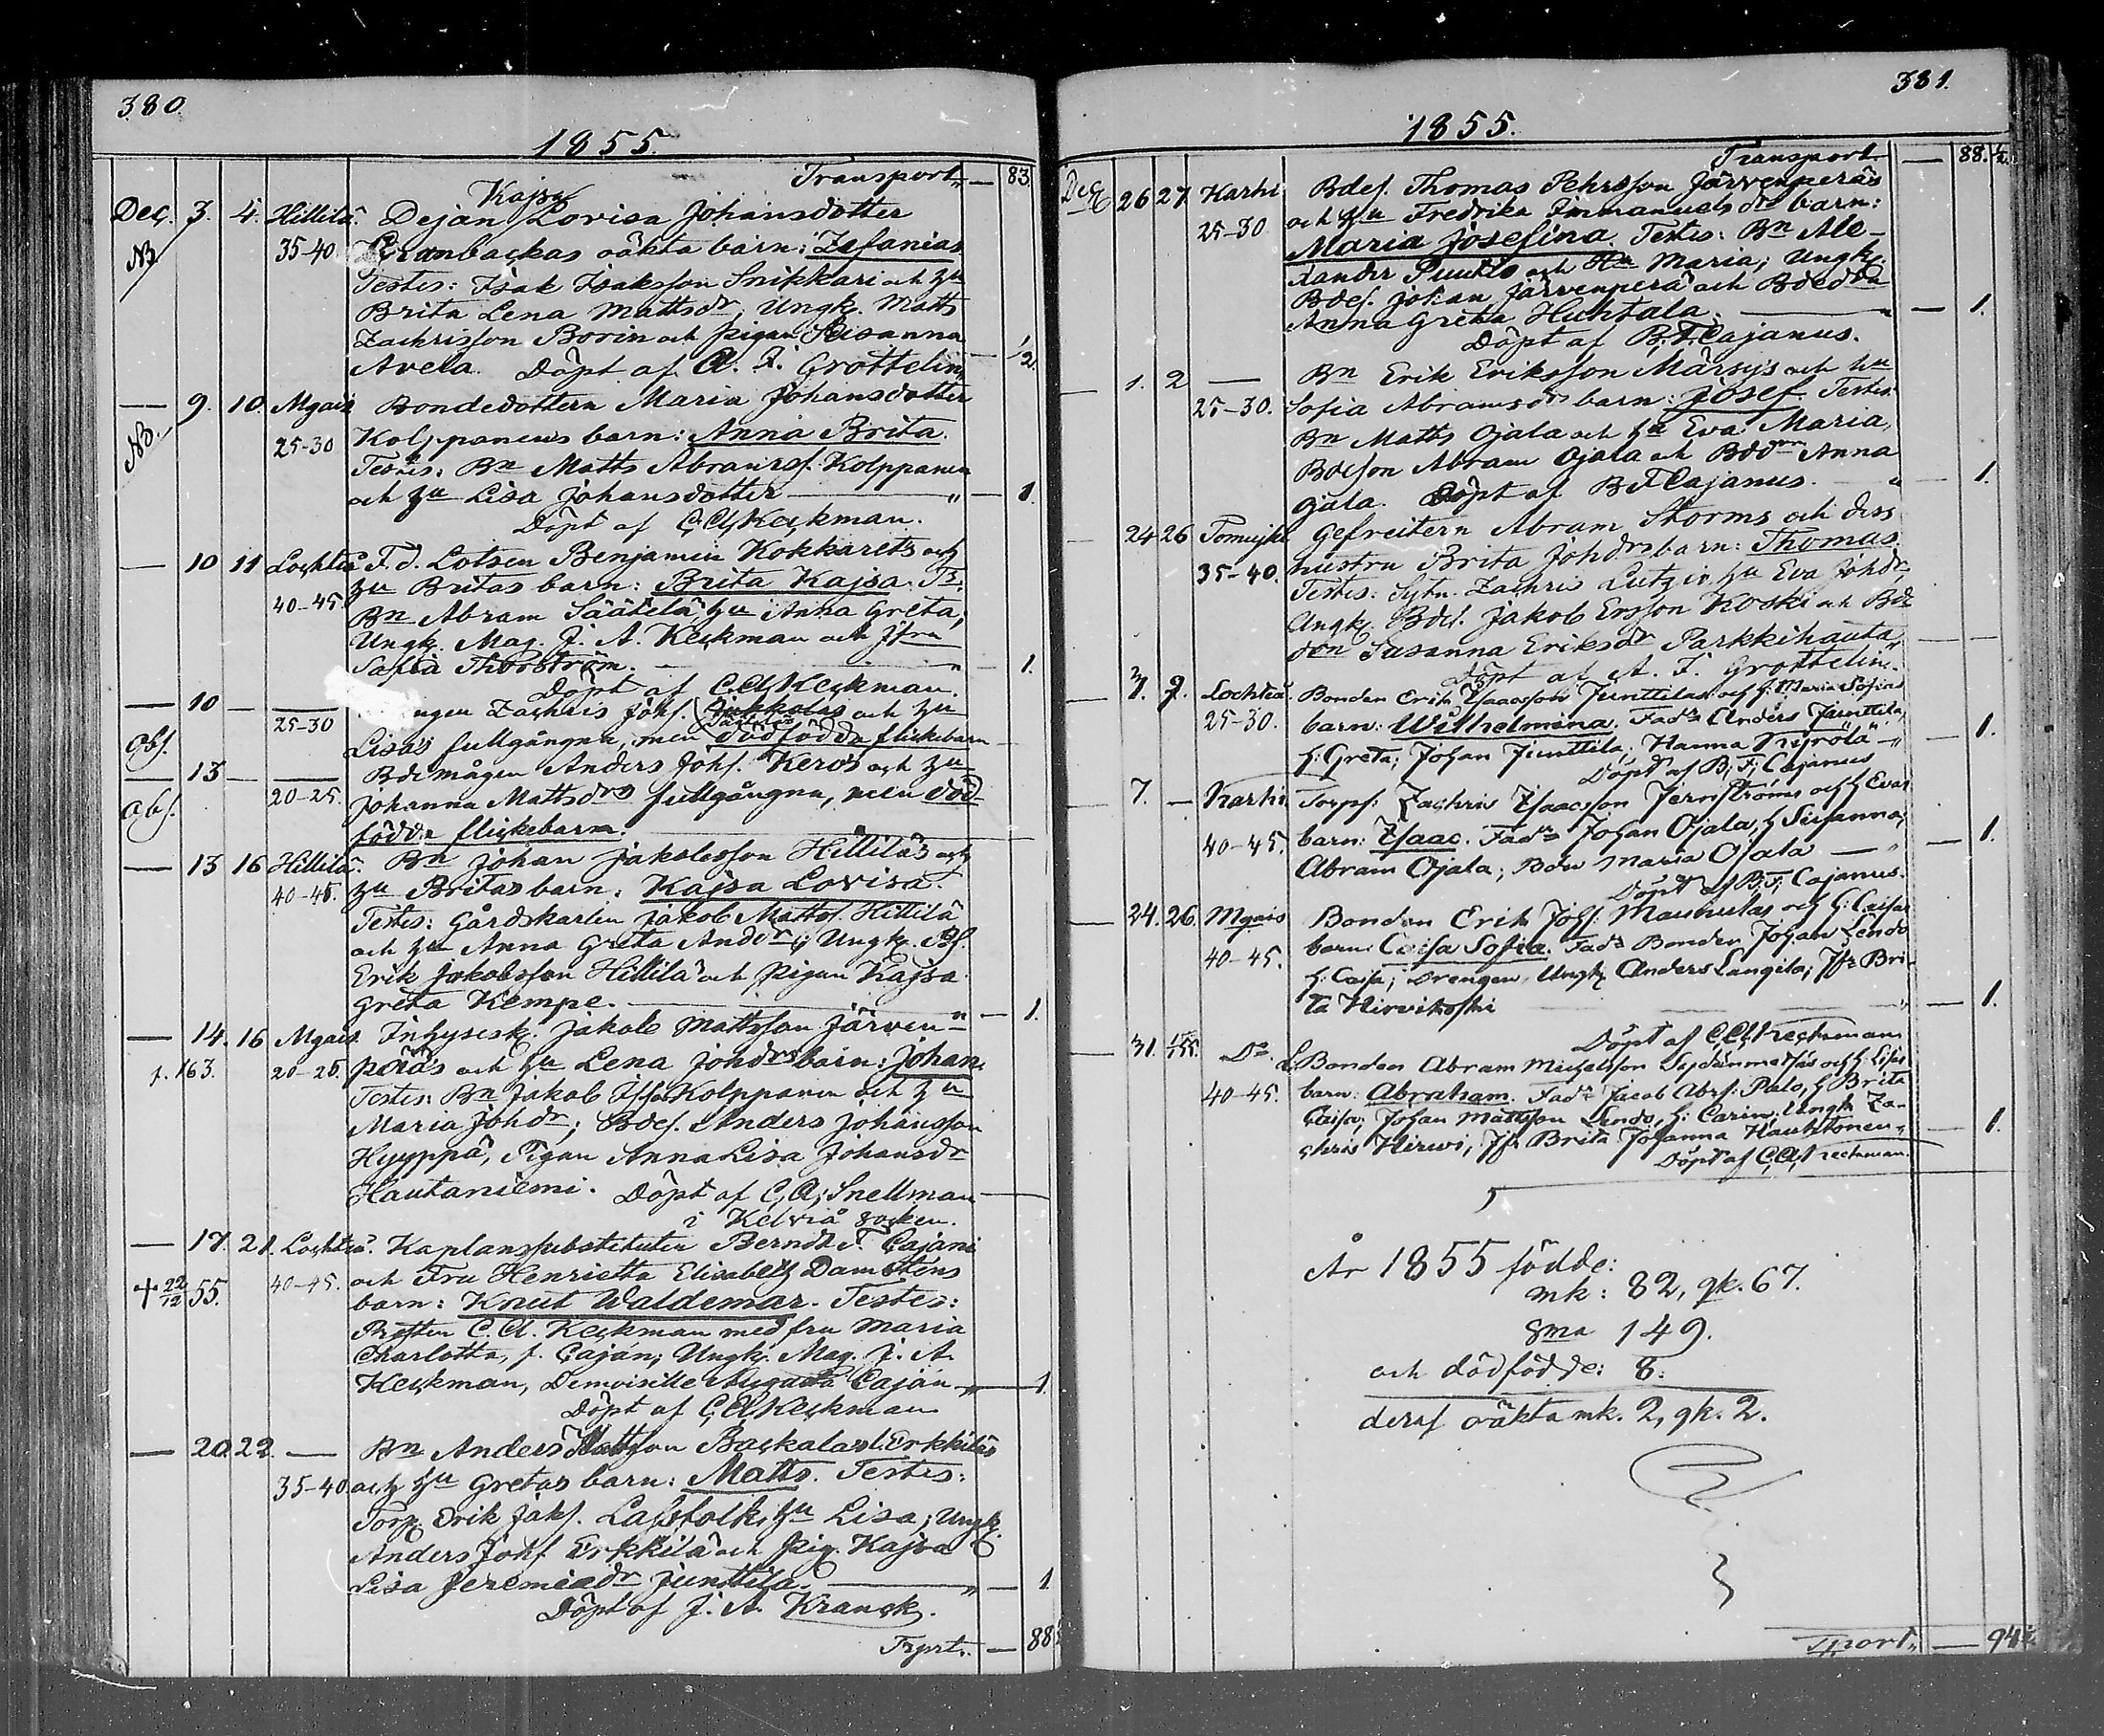 380.
1855.
Transport „ — 83.
Kajsa
Dec. 3. 4. Hillilä. Dejan Lovisa Johansdotter
NB 35-40 Granbackas oäkta barn: Zefanias
Testes: Isak Isaksson Snikkari och Hu
Brita Lena Mattsdr, Ungk. Matts
Zachrisson Borin och pigan Susanna
Avela. Döpt af A. F. Grottelin — 1/2
— 9. 10. Mgais Bondedottern Maria Johansdotter
NB. 25-30 Kolppanens barn: Anna Brita.
Testes: Bn Matts Abramss. Kolppanen
och Hu Lisa Johansdotter — „ — 1.
Döpt af C. A. Keckman.
— 10 11 Lochteå F. d. Lotsen Benjamin Kokkarets och
40-45 Hu Britas barn: Brita Kajsa. Ts:
Bn Abram Säätelä, Hu Anna Greta;
Ungk. Mag. J. A. Keckman och Jfru
Sofia Thorström. — „ — 1.
Döpt af C. A. Keckman.
— 10 — — Zachris Johs. Jukkalas och Hu
Obs. 25-30 Lisas fullgångna, men dödfödda flickebarn
— 13 — — Bdemågen Anders Johs. Keros och Hu
Obs. 20-25. Johanna Mattsdrs fullgångna, men död-
födda flickebarn.
— 13 16 Hillilä. Bn Johan Jakobsson Hilliläs och
40-45. Hu Britas barn: Kajsa Lovisa.
Testes: Gårdskarlen Jakob Mattss. Hillilä
och Hu Anna Greta Andersdr; Ungk. Bs.
Erik Jakobsson Hillilä och pigan Kajsa
Greta Kempe. — „ — 1.
— 14. 16 Mgais Inhysesk. Jakob Mattsson Järven-
p. 163. 20-25. päräs och Hu Lena Johdrs barn: Johan.
Testes: Bn Jakob Kolppanen och Hu
Maria Johdr; Bdes. Anders Johansson
Hyyppä, Pigan Anna Lisa Johansdr
Hautaniemi. Döpt af C. A. Snellman —
i Kelviå socken.
— 17. 21. Lochteå. Kaplanssubstituten Berndt F. Cajani
+ 22/12 55. 40-45. och Fru Henrietta Elisabeth Damsténs
barn: Knut Waldemar. Testes:
Prosten C. A. Keckman med fru Maria
Charlotta, f. Caján; Ungk. Mag. J. A.
Keckman, Demoiselle Augusta Caján „ — 1
Döpt af C. A. Keckman
— 20. 22. — Bn Anders Mattsson Backala l. Erkkiläs
35-40. och Hu Gretas barn: Matts. Testes:
Torp. Erik Jaks. Lassfolk, Hu Lisa; Ungk.
Anders Johs Erkkilä och Pig. Kajsa
Lisa Jeremiædr Junttila. — „ — 1
Döpt af J. A. Kranck.
Trprt. — 88 1/2
381.
1855.
Transport — 88. 1/2.
Dec 26 27 Karhi Bdes. Thomas Pehrsson Järvenperäs
25-30 och Hu Fredrika Immanuels drs barn:
Maria Josefina. Testes: Bn Ale-
xander Puutio och Hu Maria; Ungk.
Bdes. Johan Järvenperä och Bdedrn
Anna Greta Huhtala. — „ — 1.
Döpt af B. F. Cajanus.
— 1. 2 — Bn Erik Eriksson Märsys och Hu
25-30. Sofia Abramsdrs barn: Josef. Testes:
Bn Matts Ojala och Hu Eva Maria,
Bdeson Abram Ojala och Bddrn Anna
Ojala. Döpt af B. F. Cajanus. „ — 1.
— 24 26 Tomujki Gefreitern Abram Storms och dess
35-40. hustru Brita Johdrs barn: Thomas.
Testes: Sytn. Zachris Lutzin, Hu Eva Johdr,
Ungk. Bdes. Jakob Ersson Koski och Bde
don Susanna Eriksdr Parkkihauta „ —
Döpt af A. F. Grottelin.
— Lochteå. Bonden Erik Isaacsson Junttilas och H: Maria Sofias
25-30. barn: Wilhelmina. Faddr Anders Junttila,
H: Greta; Johan Junttila; Hanna — „ — 1.
Döpt af B. F. Cajanus
— 7. — Karhi Torps: Zachris Isaacsson Jernströms och H Evas
40-45. barn: Isaac. Faddr Johan Ojala, H Susanna;
Abram Ojala; Bdu Maria Ojala — „ — 1.
Döpt af B. F. Cajanus.
— 24. 26. Mgais Bonden Erik Johs: Maunulas och H: Caisas
40-45. barn Caisa Sofia. Fadr Bonden Johan Lendo
H: Caisa; Drengen, Ungk Anders Langila; Jfr Bri-
ta Hirvikoski — „ — 1.
Döpt af C. A. Keckman
— 31. Do. Bonden Abram Michelsson Sydänmetsäs och H: Lisas
40-45. barn: Abraham. Fadr Jacob Abrs: Palo, H Brita
Caisa; Johan Mattsson Lendo, H: Carin; Ungk Za-
chris Hirwi, Jfr Brita Johanna Hauhtonen „ — 1.
Döpt af C. A. Keckman.
År 1855 födde:
mk: 82, qk. 67.
Sma 149.
och dödfödde: 8.
deraf oäkta mk. 2, qk. 2.
Tport „ — 94 1/2